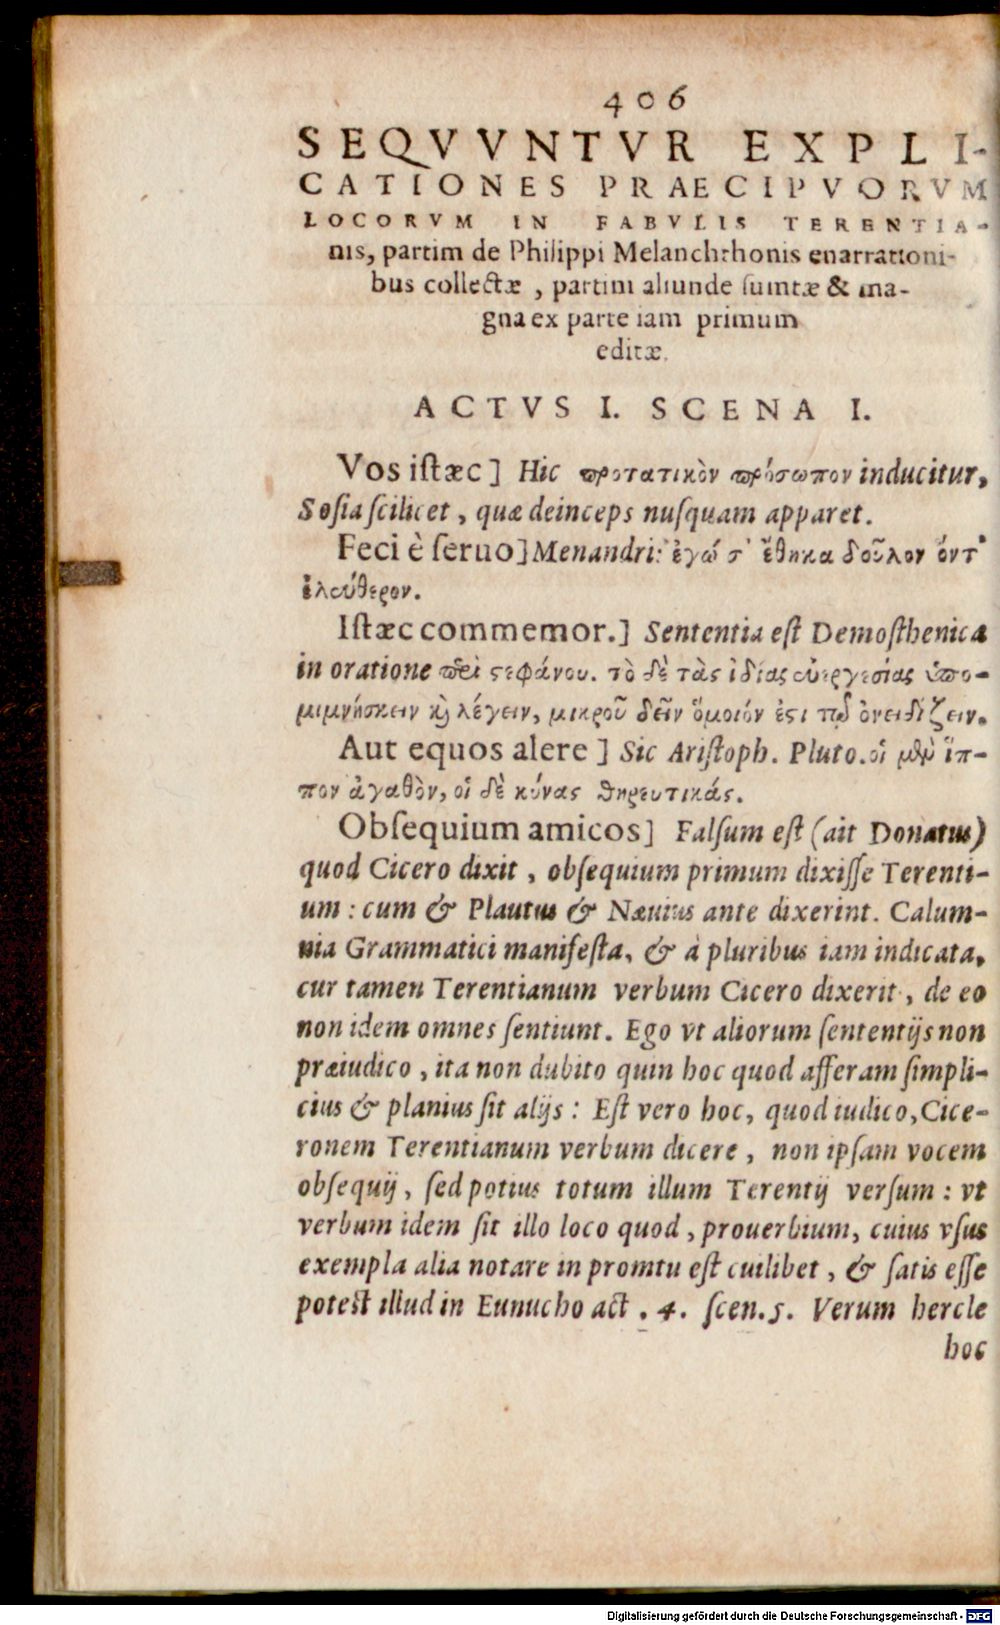 406
SEQVVNTVR EXPLI-
CATIONES PRAECIPVORVM
LOCORVM IN FABVLIS TERENTIA-
nis, partim de Philippi Melanchthonis enarrationi-
bus collectæ , partim aliunde ſumtæ & ma-
gna ex parte iam primum
editæ.
ACTVS I. SCENA I.
Vos iſtæc] Hic προτατικὸν πρόσωπον inducitur,
Soſia ſcilicet, quæ deinceps nuſquam apparet.
Feci è ſeruo] Menandri: ἐγώ σ᾽ ἔθηκα δοῦλον ὄντ᾽
ἐλεύθερον.
Iſtæc commemor.] Sententia eſt Demoſthenica
in oratione περὶ ϛεφάνου. τὸ δὲ τὰς ἰδίας εὐεργεσίας ὑπο-
μιμνήσκειν καὶ λέγειν, μικροῦ δεῖν ὅμοιόν ἐϛι τῷ ὀνειδίζειν.
Aut equos alere ] Sic Ariſtoph. Pluto. οἱ μὲν ἵπ-
πον ἀγαθὸν, οἱ δὲ κύνας θηρευτικάς.
Obſequium amicos] Falſum eſt (ait Donatus)
quod Cicero dixit , obſequium primum dixiſſe Terenti-
um : cum & Plautus & Næuius ante dixerint. Calum-
nia Grammatici manifeſta, & à pluribus iam indicata,
cur tamen Terentianum verbum Cicero dixerit , de eo
non idem omnes ſentiunt. Ego vt aliorum ſententijs non
præiudico , ita non dubito quin hoc quod afferam ſimpli-
cius & planius ſit alijs : Eſt vero hoc, quod iudico, Cice-
ronem Terentianum verbum dicere , non ipſam vocem
obſequij , ſed potius totum illum Terentij verſum : vt
verbum idem ſit illo loco quod , prouerbium, cuius vſus
exempla alia notare in promtu eſt cuilibet , & ſatis eſſe
poteſt illud in Eunucho act . 4. ſcen. 5. Verum hercle
hoc
Digitalisierung gefördert durch die Deutsche Forschungsgemeinschaft - DFG